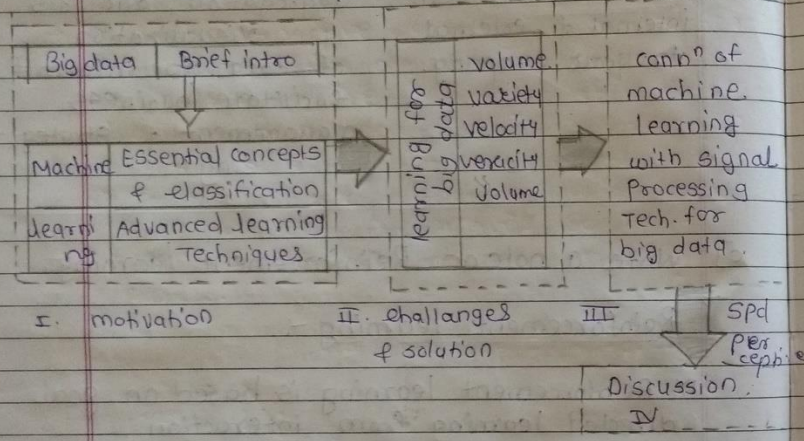 Big data Brief intro
Machine Essential concepts
& classification
learni Advanced learning
ng Techniques
learning for
big data
volume
variety
velocity
veracity
volume
conn^n of
machine
learning
with signal
Processing
Tech. for
big data.
I. motivation
II. challanges
& solution
III
spd
per
ceptive
Discussion.
IV